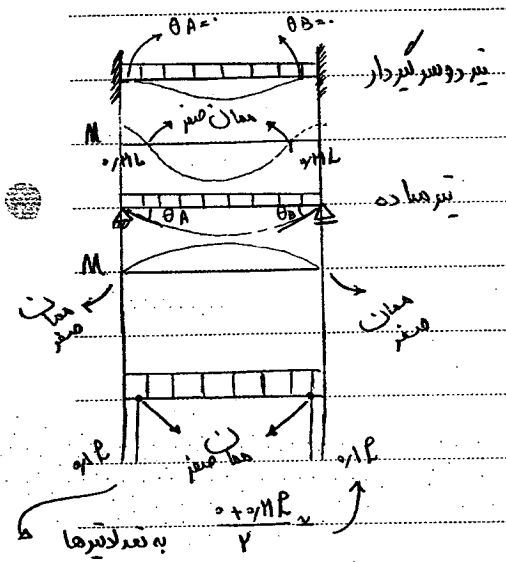 θA=۰ θB=۰
تیر دو سر گیردار
M
ممان صفر
۰/۲۱L ۰/۲۱L
تیر ساده
θA θB
M
ممان صفر
ممان صفر
ممان صفر
۰/۱L ۰/۱L
۰+۰/۲۱L
۲
به تعداد تیرها